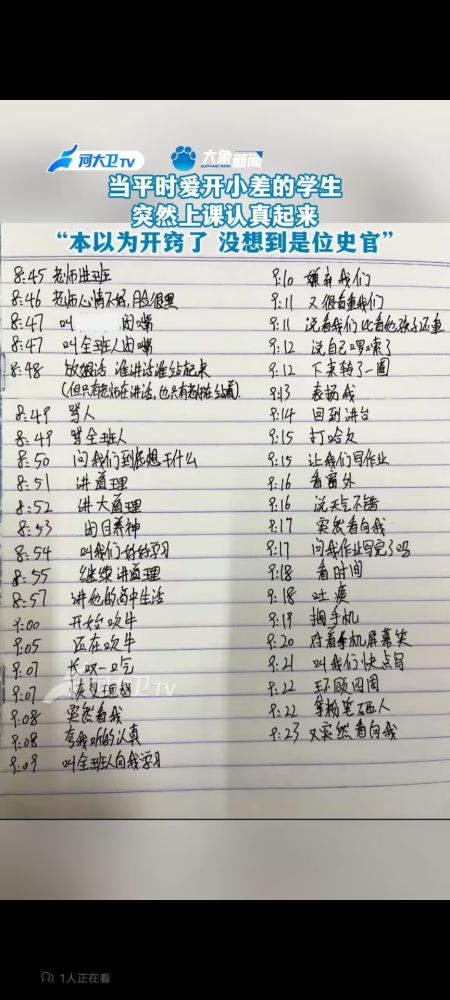 河大卫TV 大象新闻
ELEPHANT NEWS
当平时爱开小差的学生
突然上课认真起来
“本以为开窍了 没想到是位史官”
8:45 老师进班
8:46 老师心情不好,脸很黑
8:47 叫 闭嘴
8:47 叫全班人闭嘴
8:48 放狠话 谁讲话谁站起来
(但只有老师在讲话,也只有老师在站着).
8:49 骂人
8:49 骂全班人
8:50 问我们到底想干什么
8:51 讲道理
8:52 讲大道理
8:53 闭目养神
8:54 叫我们好好学习
8:55 继续讲道理
8:57 讲他的高中生活
9:00 开始吹牛
9:05 还在吹牛
9:07 长叹一口气
9:07 恢复理智
9:08 突然看我
9:08 夸我听的认真
9:09 叫全班人向我学习
9:10 嫌弃我们
9:11 又很看重我们
9:11 说看我们比看他孩子还重
9:12 说自己啰嗦了
9:12 下来转了一圈
9:13 表扬我
9:14 回到讲台
9:15 打哈欠
9:15 让我们写作业
9:16 看窗外
9:16 说天气不错
9:17 突然看向我
9:17 问我作业写完了吗
9:18 看时间
9:18 吐痰
9:19 掏手机
9:20 对着手机屏幕笑
9:21 叫我们快点写
9:22 环顾四周
9:22 拿粉笔砸人
9:23 又突然看向我
河大卫TV
1人正在看